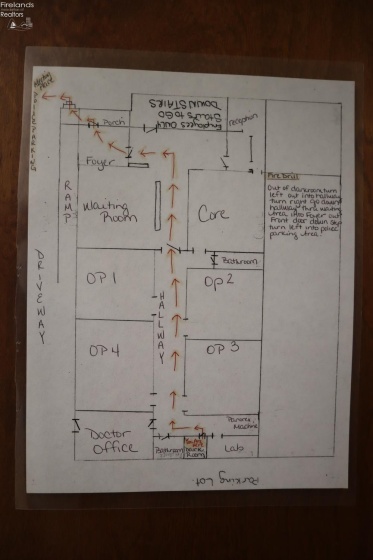 Firelands
Association of
Realtors
Meeting
Place
Police Parking
Porch
Employees only
Stairs to GO
DOWNSTAIRS
reception
Foyer
RAMP
Waiting
Room
Core
Fire Drill
Out of darkroom turn
left out into hallway
turn right go down
hallway thru waiting
area, into Foyer out
front door down steps
turn left into police
parking area.
DRIVEWAY
Bathroom
OP 1
HALLWAY
OP 2
OP 4
OP 3
Machine
Doctor
Office
Bathroom
Room
Lab
Parking Lot